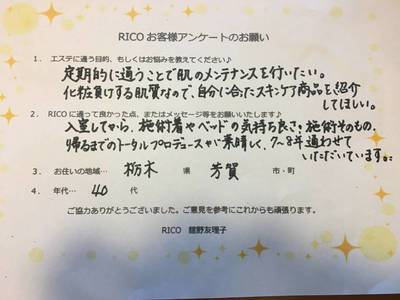 RICOお客様アンケートのお願い
1. エステに通う目的、もしくはお悩みを教えてください♪
定期的に通うことで肌のメンテナンスを行いたい。
化粧負けする肌質なので、自分に合ったスキンケア商品を紹介
してほしい。
2. RICOに通って良かった点、またはメッセージ等をお願いいたします♪
入室してから、施術着やベッドの気持ち良さ、施術そのもの、
帰るまでのトータルプロデュースが素晴しく、7~8年通わせて
いただいています。
3. お住いの地域… 栃木 県 芳賀 市・町
4. 年代… 40 代
ご協力ありがとうございました。ご意見を参考にこれからも頑張ります。
RICO 舘野友理子